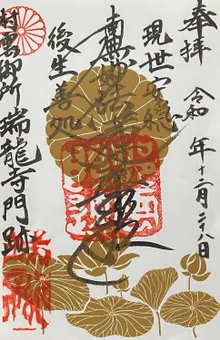 奉拝
令和 年十二月二十八日
現世安穏
南無妙法蓮華経
後生善処
村雲御所
瑞龍寺門跡